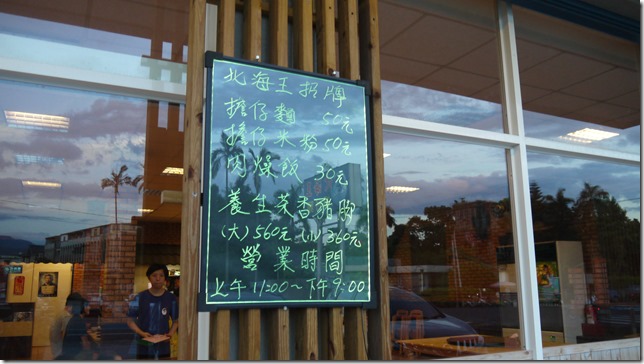 北海王招牌
擔仔麵 50元
擔仔米粉50元
肉燥飯 30元
養生菜香豬腳
(大)560元 (小)360元
營業時間
上午11:00~下午9:00